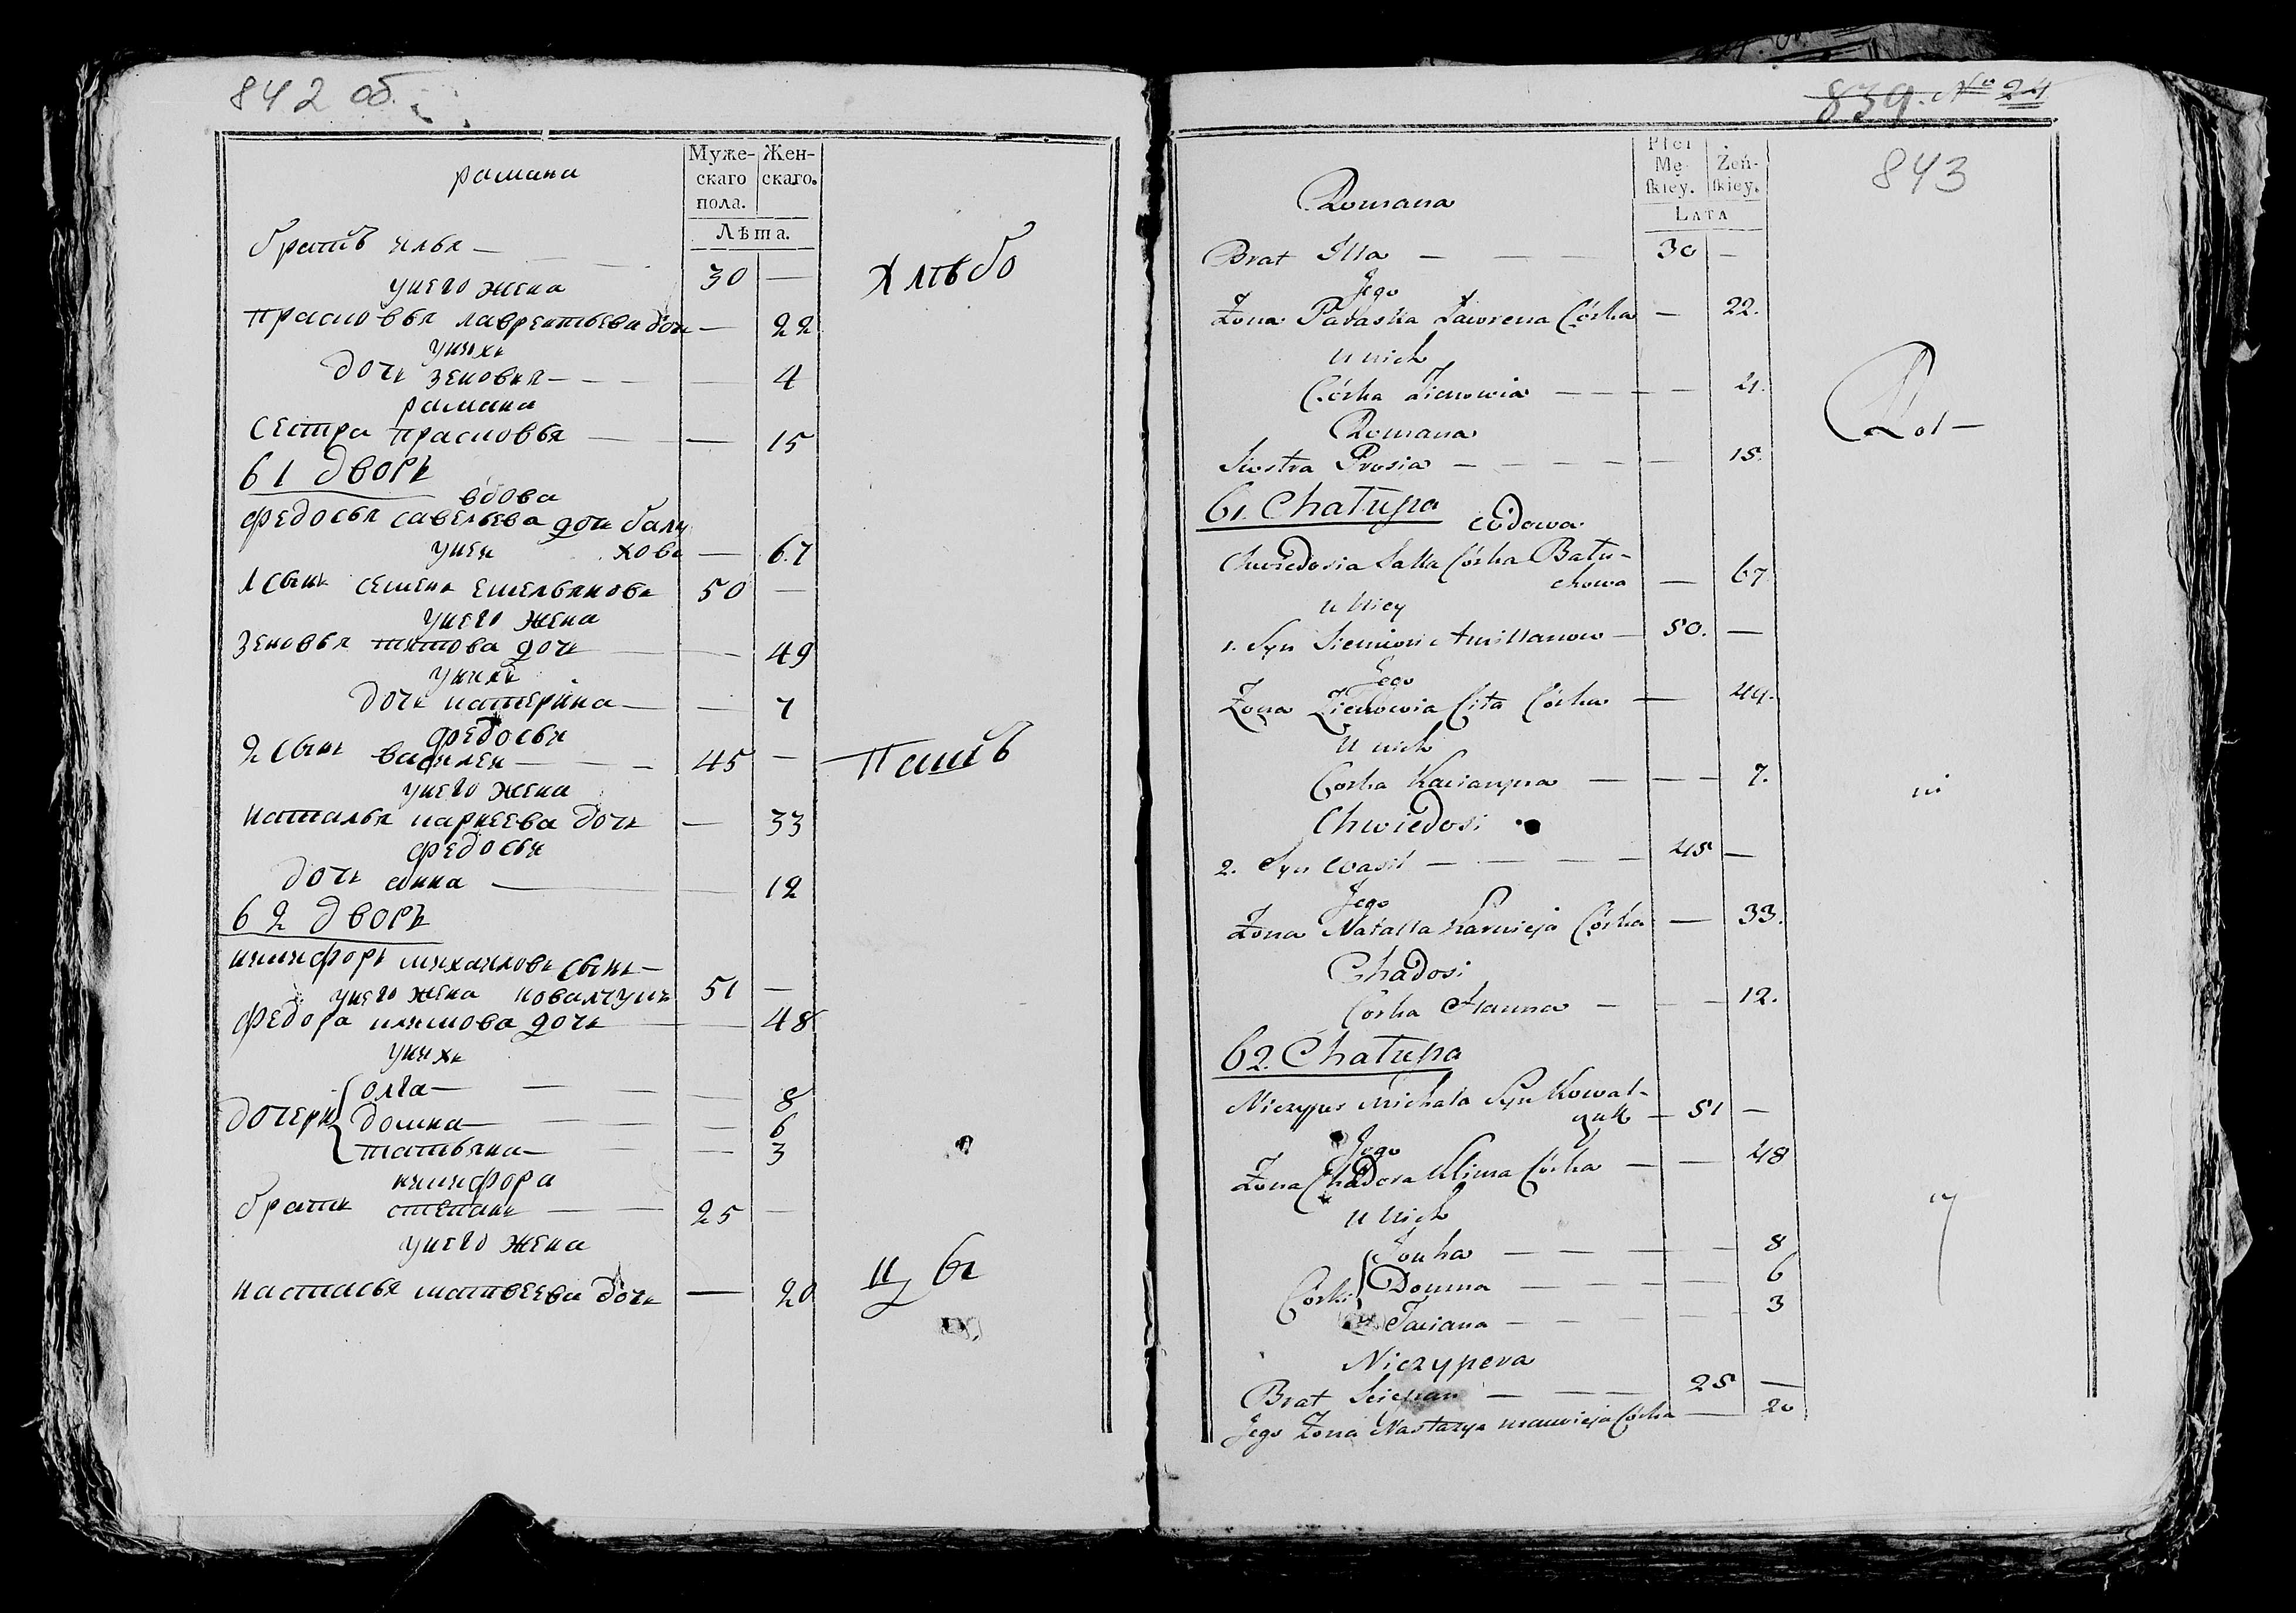 842 об.
Муже-
скаго
пола.
Жен-
скаго.
Лѣта.
рамана
братъ илья — 30 —
унего жена
прасковья лаврентьева доч — 22
унихъ
дочь зеновия — — 4
рамана
сестра прасковья — — 15
61 дворъ
вдова
федосья савельева дочь балу
унея хова — 67
1 сынъ семенъ емельяновъ 50 —
унего жена
зеновья титова дочь — 49
унихъ
дочь катерина — — 7
федосьи
2 сынъ василеи — 45 —
унего жена
наталья карнеева дочь — 33
федосьи
дочь анна — — 12
62 дворъ
никифоръ михаиловъ сынъ —
унего жена ковалчукъ 51 —
федора климова дочь — 48
унихъ
дочери
олга — — 8
домна — — 6
татьяна — — 3
никифора
братъ степанъ — 25 —
унего жена
настасья матвеева дочь — 20
хлѣбо
пашъ
цы
839. No 24
843
Płci
Mę-
ſkiey.
Żeń-
ſkiey.
Lata
Romana
Brat Illa — — — 30 —
Jego
Żona Paraska Ławrena Córka — 22.
u nich
Córka Zienowia — — — 4.
Romana
Siostra Prosia — — — — 15.
61. Chałupa
wdowa
Chwiedosia Sawa Córka Bału-
chowa — 67
u Niey
1. Syn Siemion Amillanow — 50. —
Jego
Żona Zienowia Cita Córka — 49.
U nich
Corka Kacianyna — — — 7.
Chwiedosi
2. Syn Wasil — — — 45 —
Jego
Żona Natalla Karnieja Córka — 33.
Chadosi
Corka Hanna — — — 12.
62. Chałupa
Niczyper Michała Syn Kowal-
czuk — 51 —
Jego
Żona Chadora Klima Córka — — 48
u Nich
Corki
Jouha — — — — 8
Domna — — — — 6
Taciana — — — — 3
Niczypera
Brat Sciepan — — — 25 —
Jego Żona Nastazya Macwieja Córka — 20
Rol —
ni